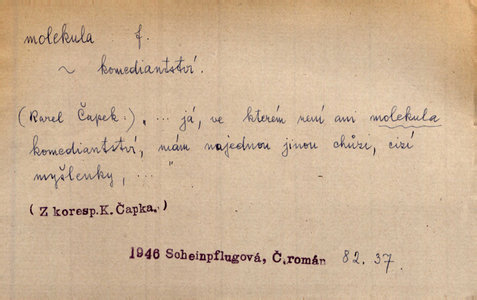 molekula f.
~ komediantství.
(Karel Čapek:) „ ... já, ve kterém není ani molekula
komediantství, mám najednou jinou chůzi, cizí
myšlenky, ... "
(Z koresp. K. Čapka.)
1946 Scheinpflugová, Č. román 82. 37.